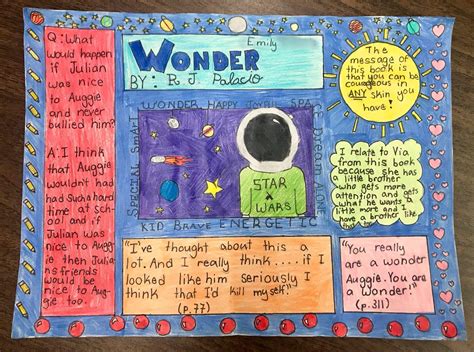 Q: What
would happen
if Julian
was nice
to Auggie
and never
bullied him?
A: I think
that Auggie
wouldn't had
had such a hard
time at
school and if
Julian was
nice to Auggie
ie then Julia
ns friends
would be
nice to Aug-
gie too.
WONDER
Emily
BY: R.J. Palacio
The
message of
this book is
that you can be
courageous in
ANY skin you
have!
WONDER HAPPY Joyful SPACE
Dream ALONE
Special Smart
STAR
WARS
KID Brave ENERGETIC
I relate to Via
from this book
because she has
a little brother
who gets more
attention and gets
what he wants a
little more and I
have a brother like
that.
"I've thought about this a
lot. And I really think....if I
looked like him seriously I
think that I'd kill myself."
(p.77)
"You really
are a wonder
Auggie. You are
a Wonder!"
(p.311)